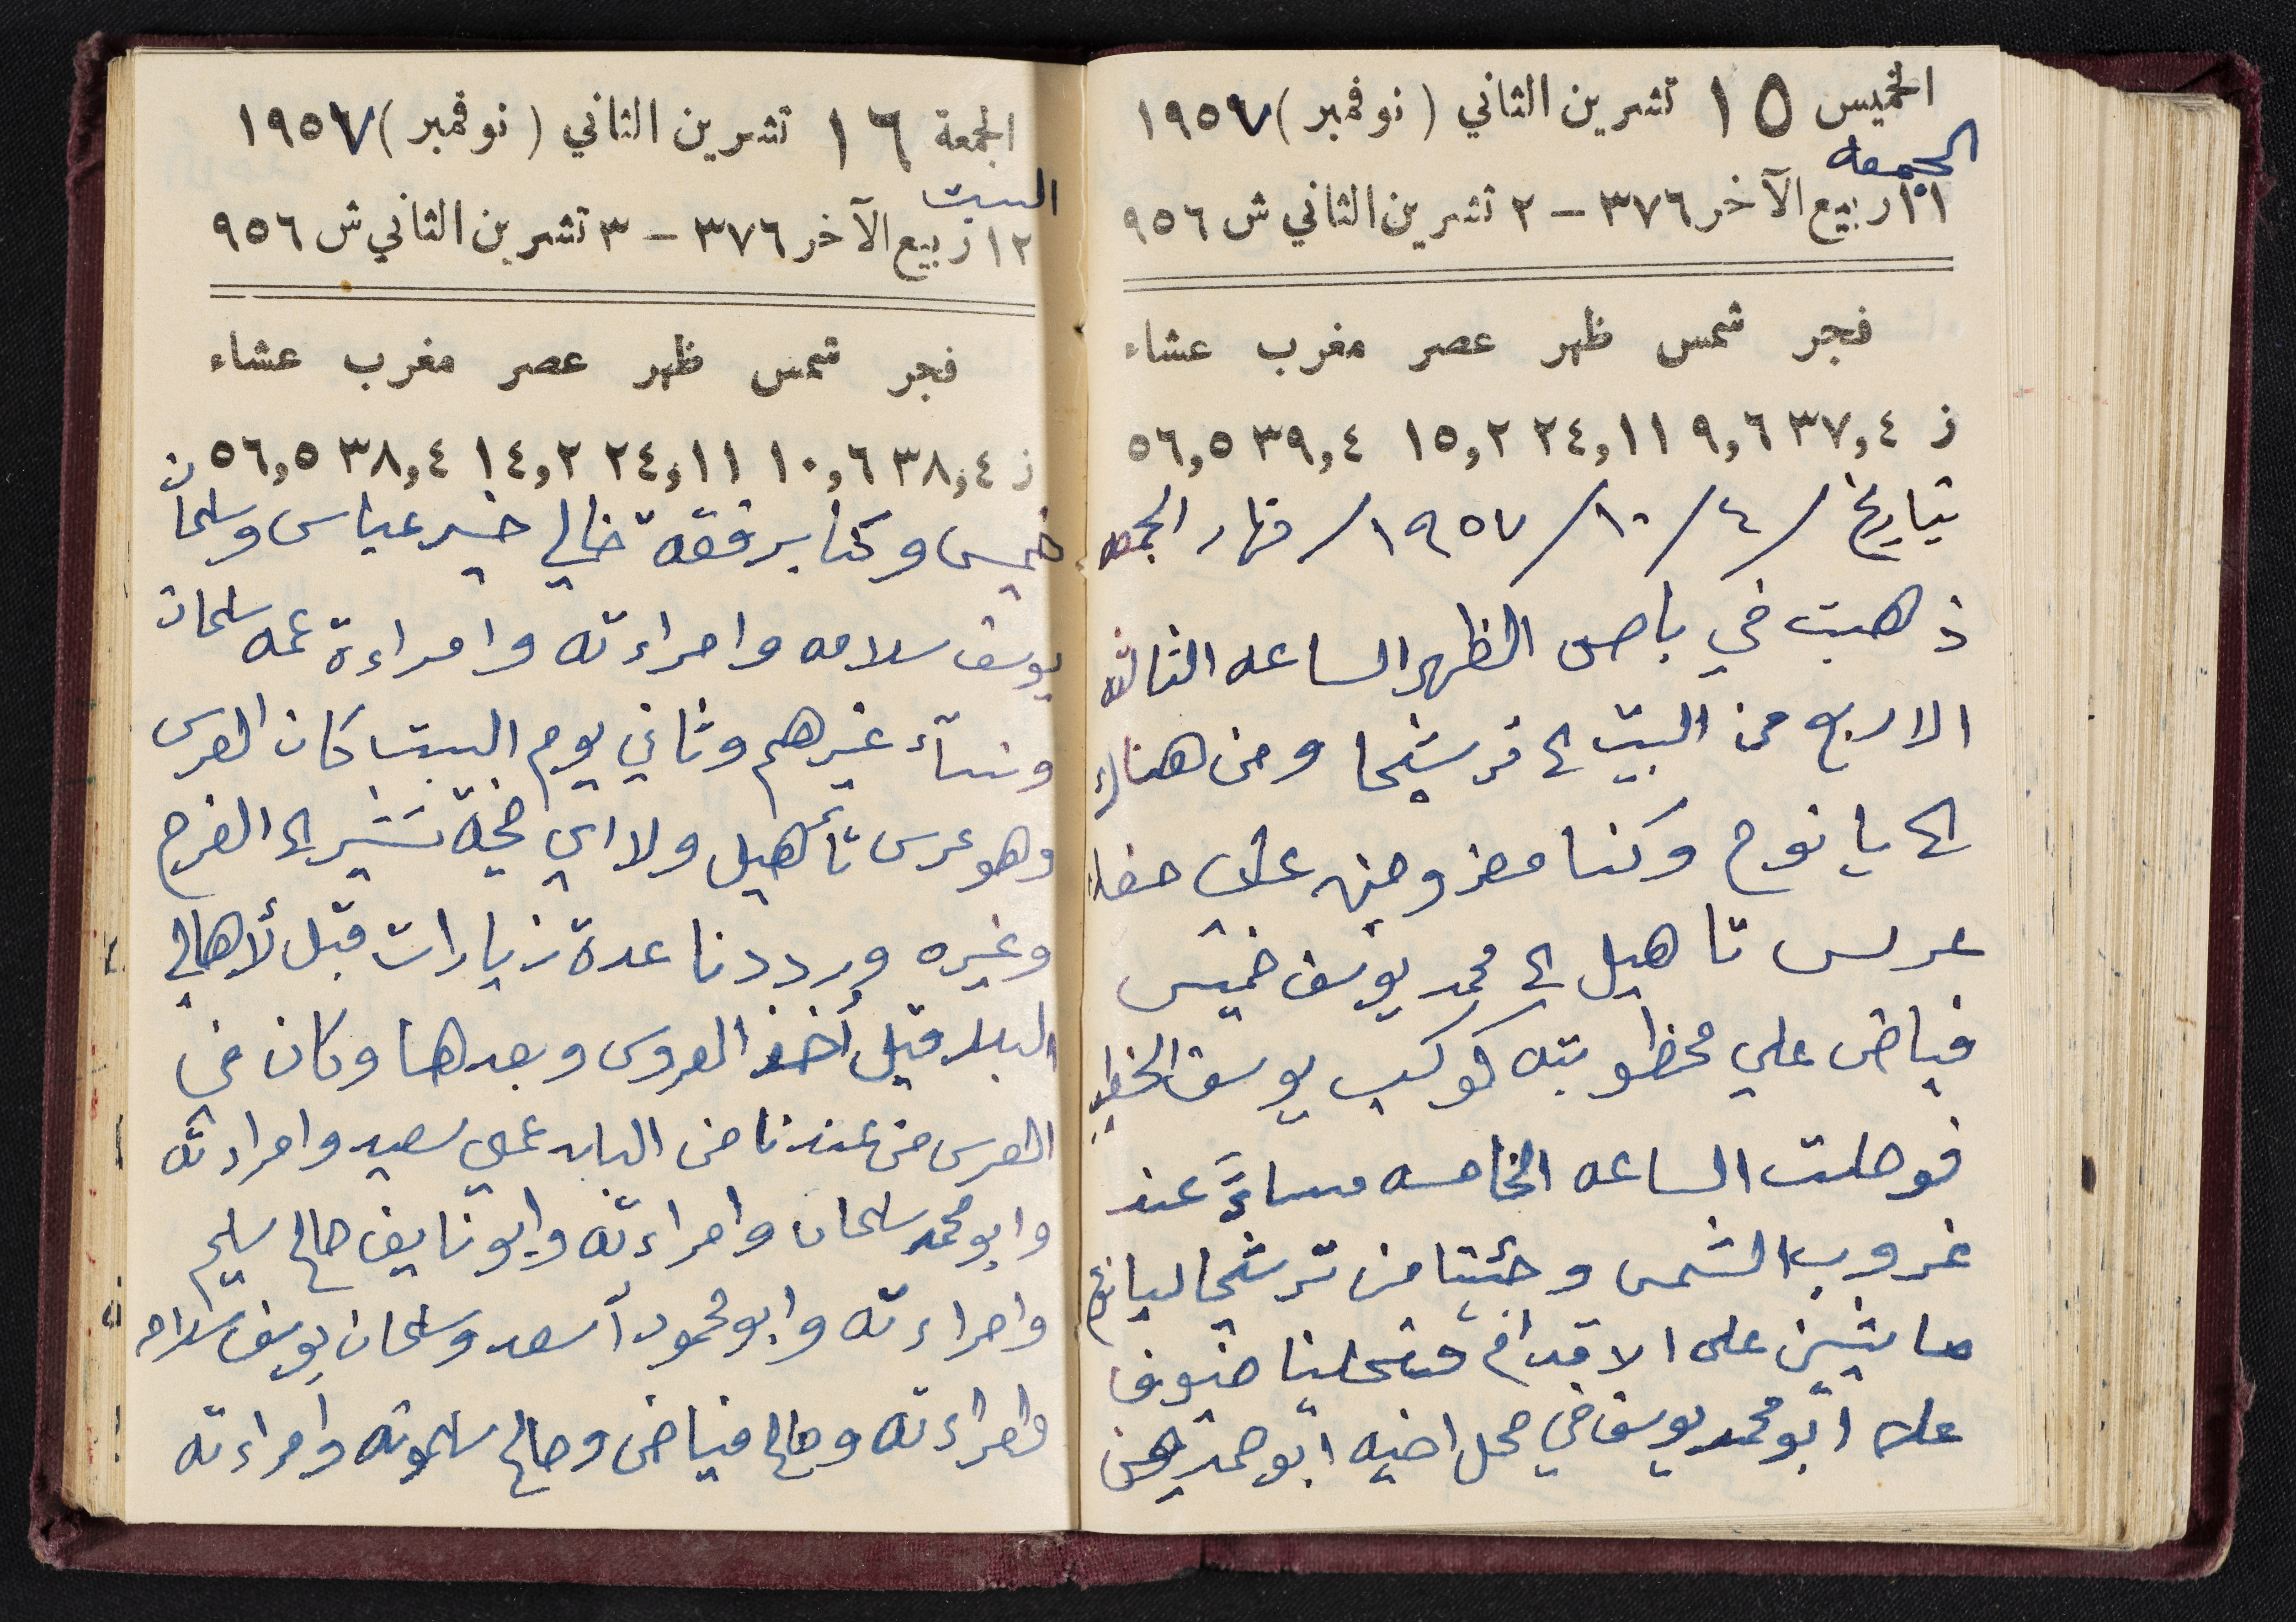 الخميس ١٥ تشرين الثاني (نوفمبر) ١٩٥٧
الجمعه
١١ ربيع الآخر ٣٧٦ – ٢ تشرين الثاني ش ٩٥٦
فجر شمس ظهر عصر مغرب عشاء
ز ٣٧,٤ ٩,٦ ٢٤,١١ ١٥,٢ ٣٩,٤ ٥٦,٥
بتاريخ /٤/١٠/١٩٥٧/ نهار الجمعه
ذهبت في باص الظهر الساعه الثالثه
الا اربع من البيت الى ترشيحا ومن هناك
الى يانوح وكنا معزومين على حفلة
عرس تاهيل الى محمد يوسف خميس
فياض على مخطوبته كوكب يوسف الخطيب
فوصلت الساعه الخامسه مساءً عند
غروب الشمس وجئنا من ترشيحا ليانوح
ماشين على الاقدام ضيوف
على ابو محمد يوسف في محل اخيه ابو حمد
الجمعة ١٦ تشرين الثاني (نوفمبر) ١٩٥٧
السبت
١٢ ربيع الآخر ٣٧٦ – ٣ تشرين الثاني ش ٩٥٦
فجر شمس ظهر عصر مغرب عشاء
ز ٣٨,٤ ١٠,٦ ٢٤,١١ ١٤,٢ ٣٨,٤ ٥٦,٥
خميس وكنا برفقة خالي خير عباس وسلمان
يوسف سلامه وامراءته وامراءة عمه سلمان
ونسآء غيرهم وثاني يوم السبت كان العرس
وهو عرس تأهيل ولا اي ضجة تشير الى الفرح
وغيره ورددنا عدة زيارات قبل لأهالي
البلد قبل أخذ العروس وبعدها وكان في
العرس من عندنا من البلد عمي سعيد وامراءته
وابو محمد سلمان وامراءته وابو نايف صالح سليم
وامراءته وابو محمود أسعد وسلمان يوسف سلامه
وامراءته وصالح فياض وصالح سلمونه وامراءته